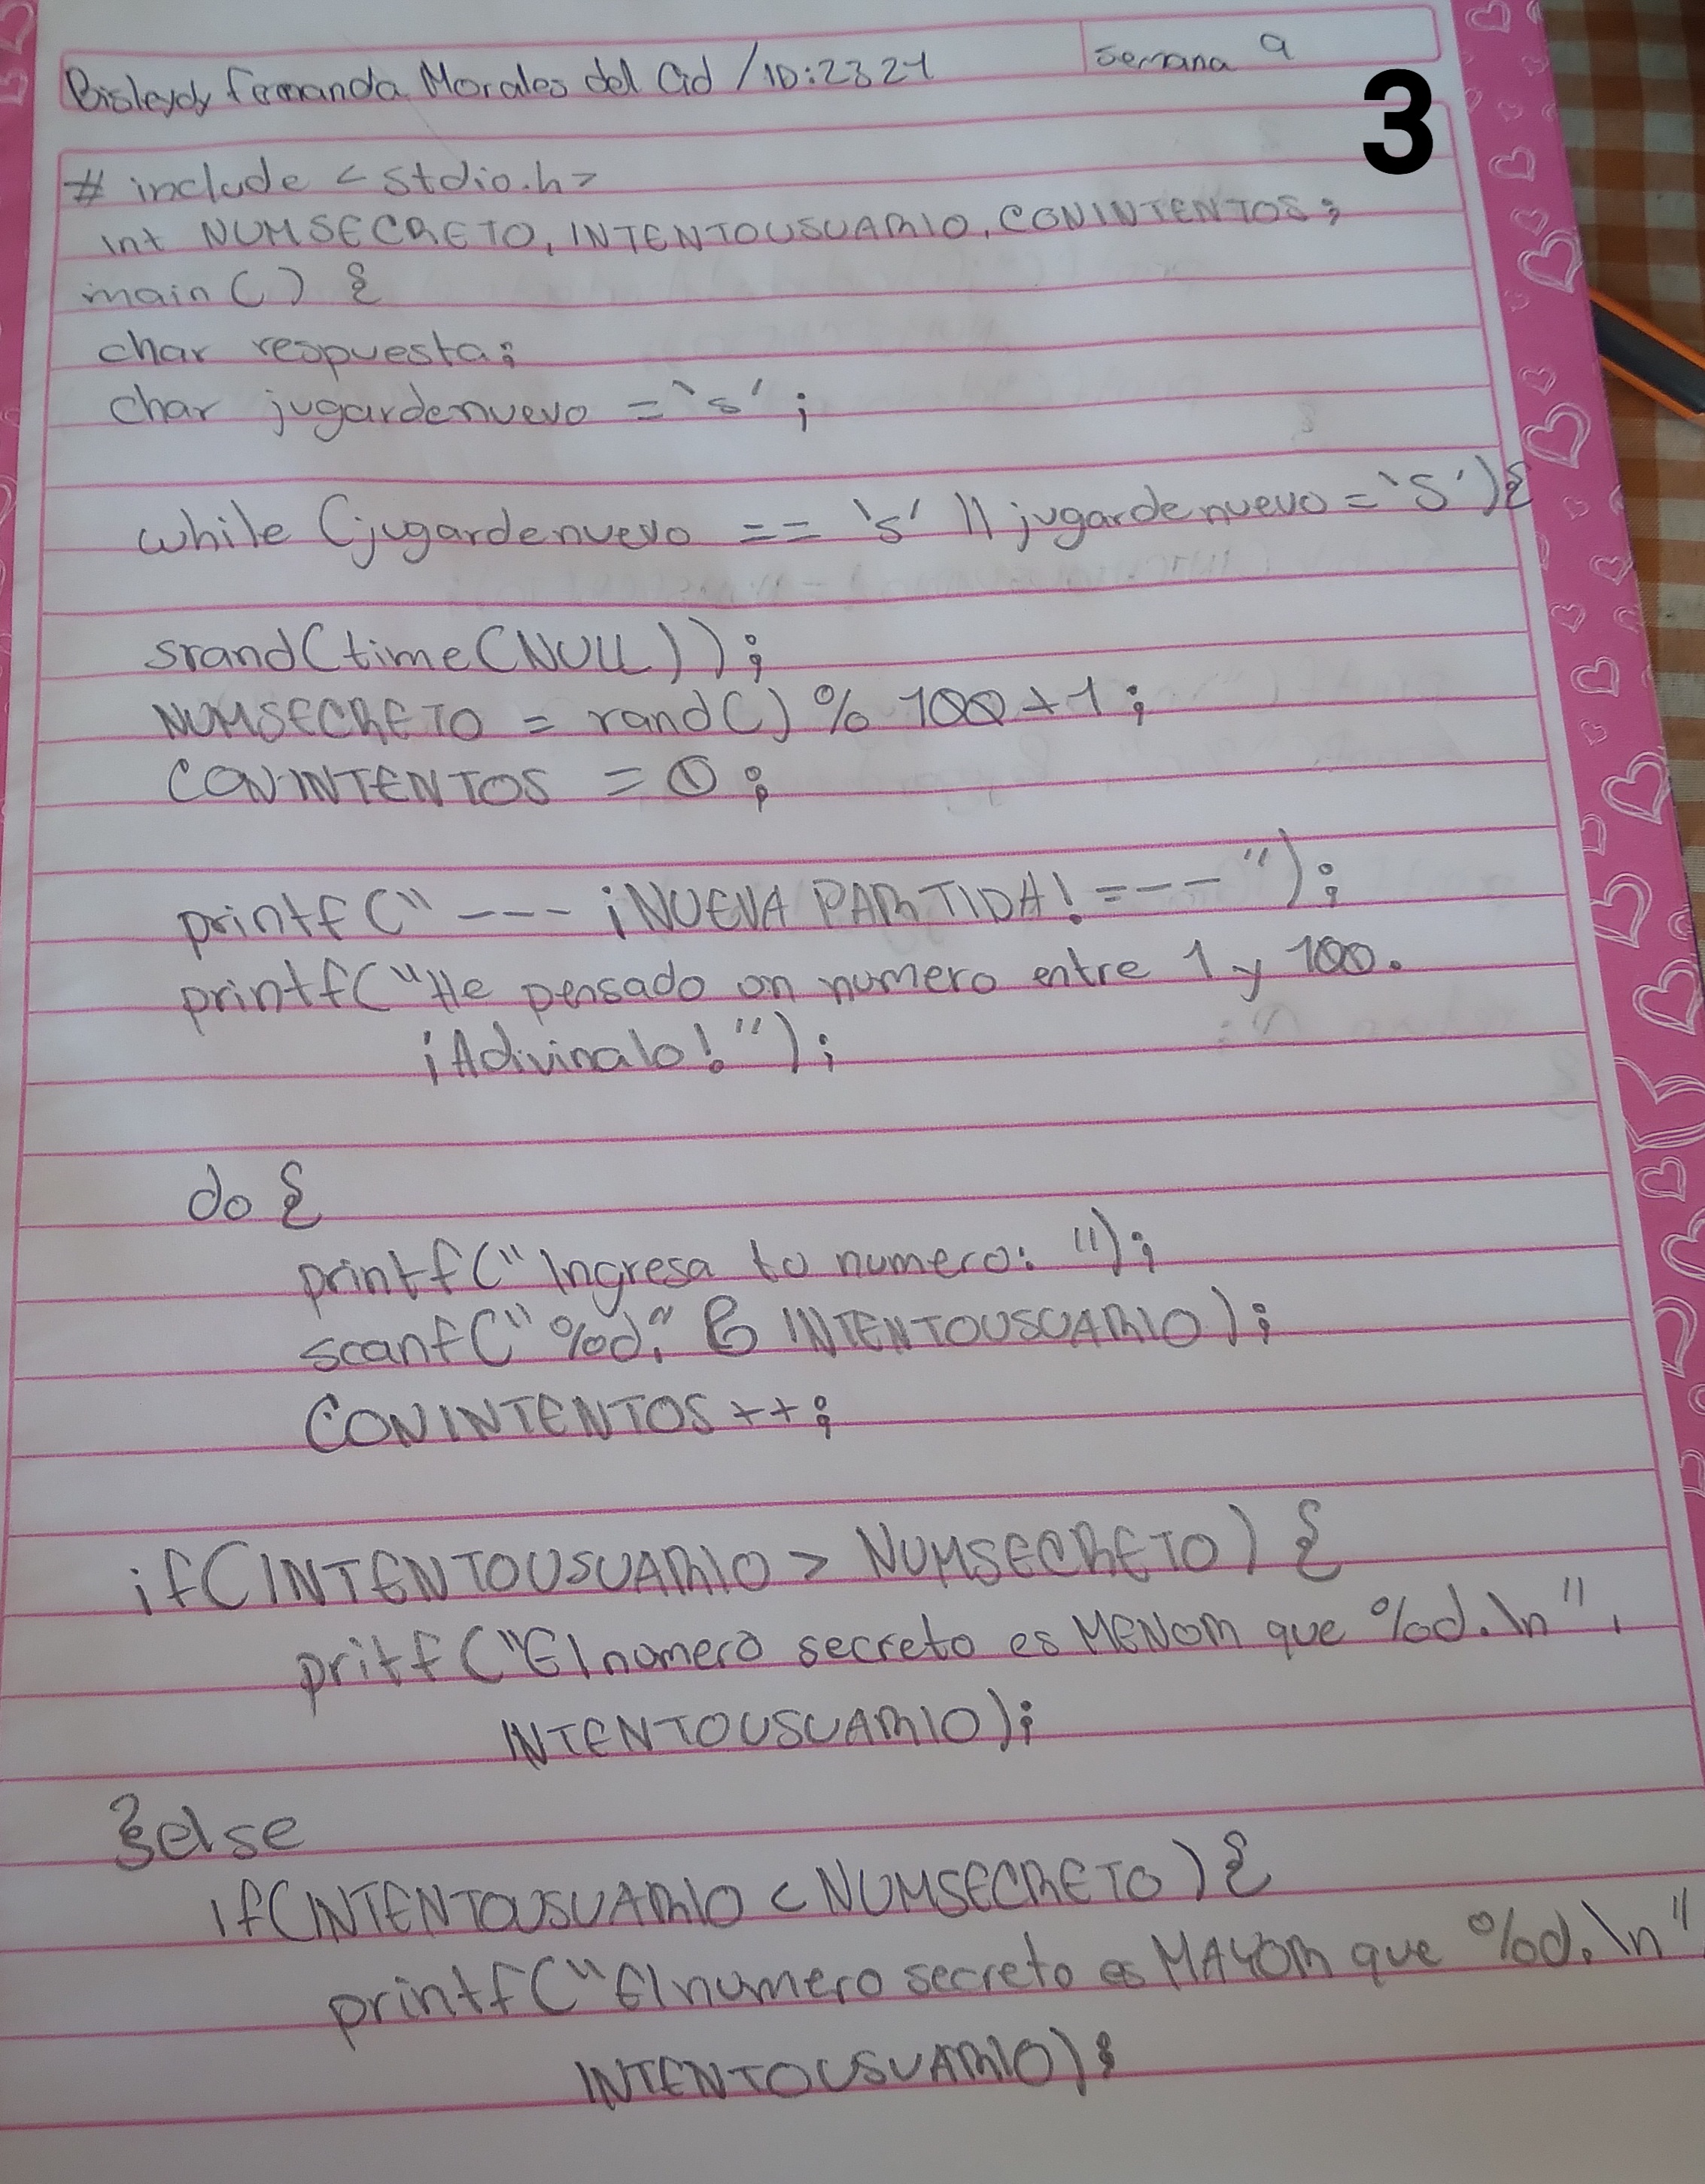 Bisleydy Fernanda Morales del Cid / ID: 2321
semana 9
3
# include < stdio.h>
int NUMSECRETO, INTENTOUSUARIO, CONINTENTOS;
main () {
char respuesta;
char jugardenuevo = 's' ;
while (jugardenuevo == 's' || jugardenuevo = 'S') {
srand(time(NULL));
NUMSECRETO = rand() % 100 + 1;
CONINTENTOS = 0;
printf (" --- ¡NUEVA PARTIDA! =-- ");
printf("He pensado un numero entre 1 y 100.
¡Adivinalo!");
do {
printf("Ingresa tu numero: ");
scanf(" %d," & INTENTOUSUARIO);
CONINTENTOS ++;
if(INTENTOUSUARIO > NUMSECRETO) {
pritf ("El numero secreto es MENOR que %d. \n",
INTENTOUSUARIO);
}else
if(INTENTOUSUARIO < NUMSECRETO) {
printf("El numero secreto es MAYOR que %d. \n"
INTENTOUSUARIO);